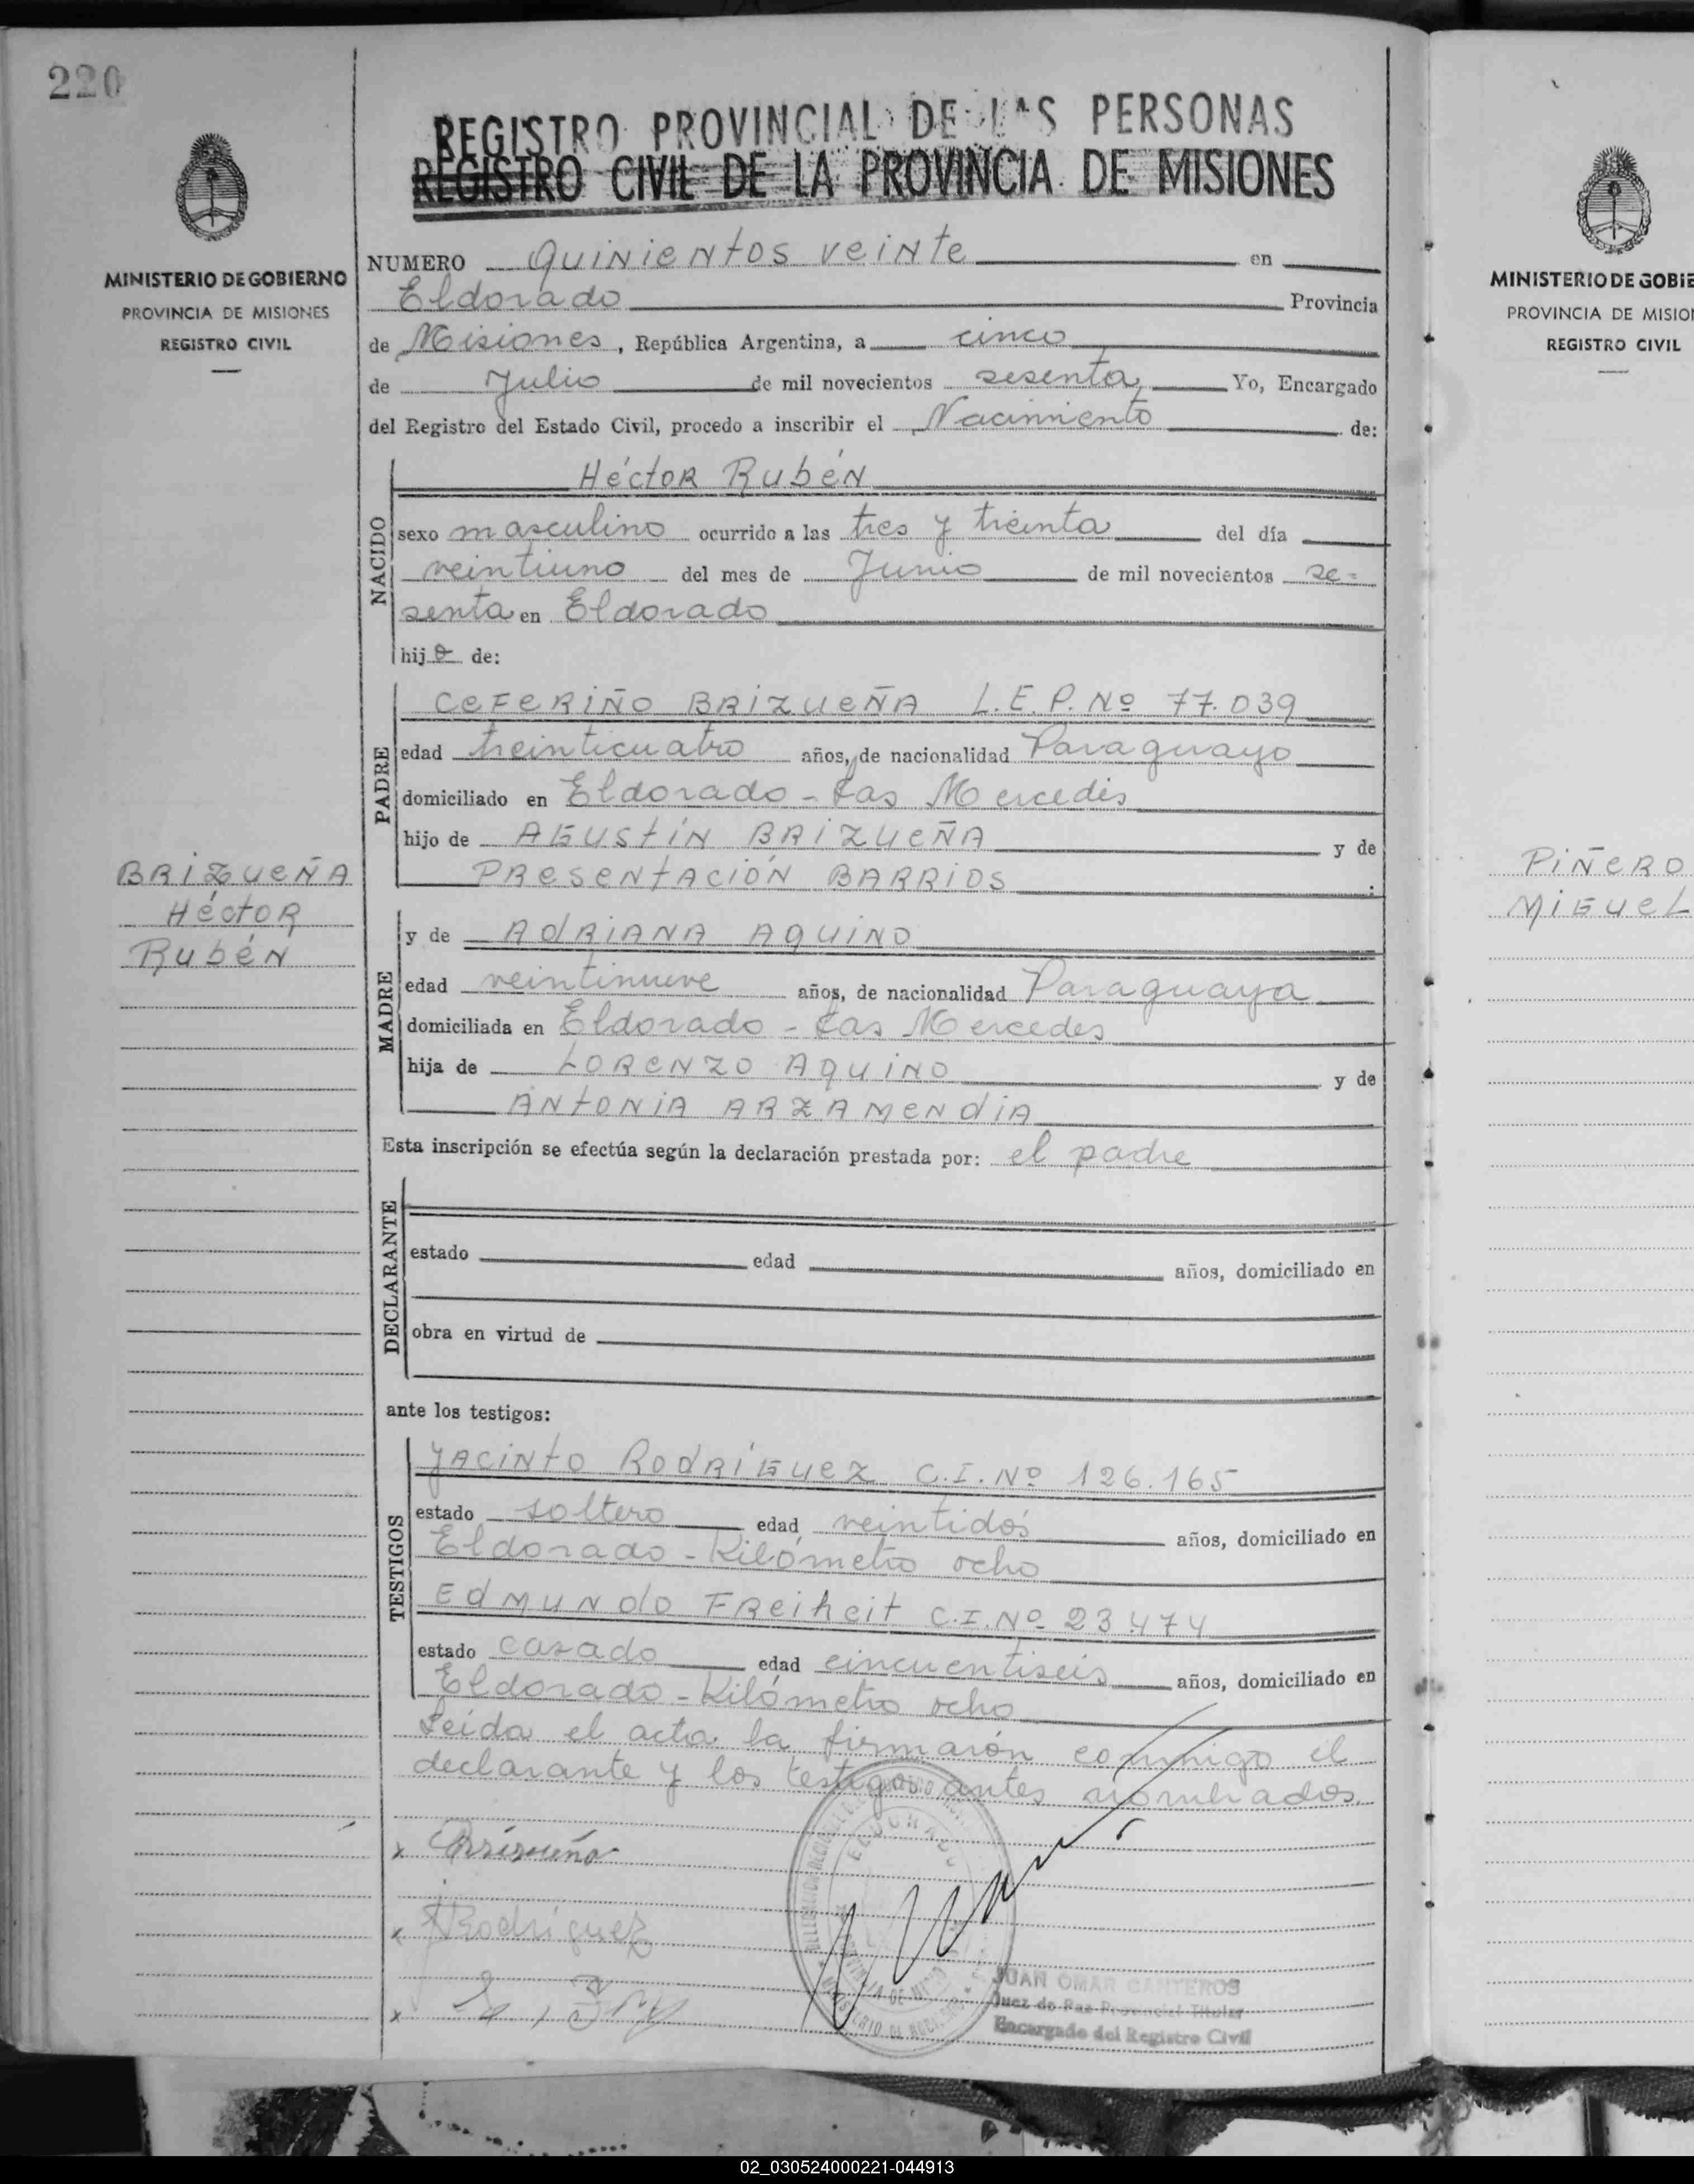 220
REGISTRO PROVINCIAL DE LAS PERSONAS
REGISTRO CIVIL DE LA PROVINCIA DE MISIONES
MINISTERIO DE GOBIERNO
PROVINCIA DE MISIONES
REGISTRO CIVIL
NUMERO Quinientos veinte en
Eldorado Provincia
de Misiones, República Argentina, a cinco
de Julio de mil novecientos sesenta, Yo, Encargado
del Registro del Estado Civil, procedo a inscribir el Nacimiento de:
NACIDO
Héctor Rubén
sexo masculino ocurrido a las tres y treinta del día
veintiuno del mes de Junio de mil novecientos se=
senta en Eldorado
hijo de:
PADRE
CEFERIÑO BRIZUEÑA L.E.P. Nº 77.039
edad treinticuatro años, de nacionalidad Paraguayo
domiciliado en Eldorado - Las Mercedes
hijo de AGUSTÍN BRIZUEÑA y de
PRESENTACIÓN BARRIOS
BRIZUEÑA
Héctor
Rubén
MADRE
y de ADRIANA AQUINO
edad veintinueve años, de nacionalidad Paraguaya
domiciliada en Eldorado - Las Mercedes
hija de LORENZO AQUINO y de
ANTONIA ARZAMENDIA
Esta inscripción se efectúa según la declaración prestada por: el padre
DECLARANTE
estado edad años, domiciliado en
obra en virtud de
ante los testigos:
TESTIGOS
JACINTO RODRÍGUEZ C.I. Nº 126.165
estado soltero edad veintidós años, domiciliado en
Eldorado - Kilómetro ocho
EDMUNDO FREIHEIT C.I. Nº 23.474
estado casado edad cincuentiseis años, domiciliado en
Eldorado - Kilómetro ocho
Leída el acta la firmarón conmigo el
declarante y los testigos antes nombrados.
x Brizueña
x JRodríguez
x
ELDORADO
JUAN OMAR CANTEROS
Juez de Paz Provincial Titular
Encargado del Registro Civil
MINISTERIO DE GOBIE
PROVINCIA DE MISIO
REGISTRO CIVIL
PIÑERO
MIGUEL
02_030524000221-044913